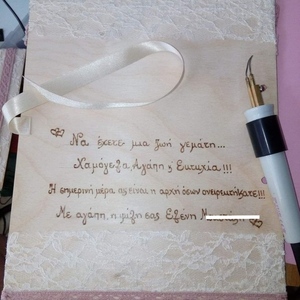 Να έχετε μια ζωή γεμάτη...
Χαμόγελα, Αγάπη & Ευτυχία!!!
Η σημερινή μέρα ας είναι η αρχή όσων ονειρευτήκατε!!!
Με αγάπη, η φίλη σας Ευγένη